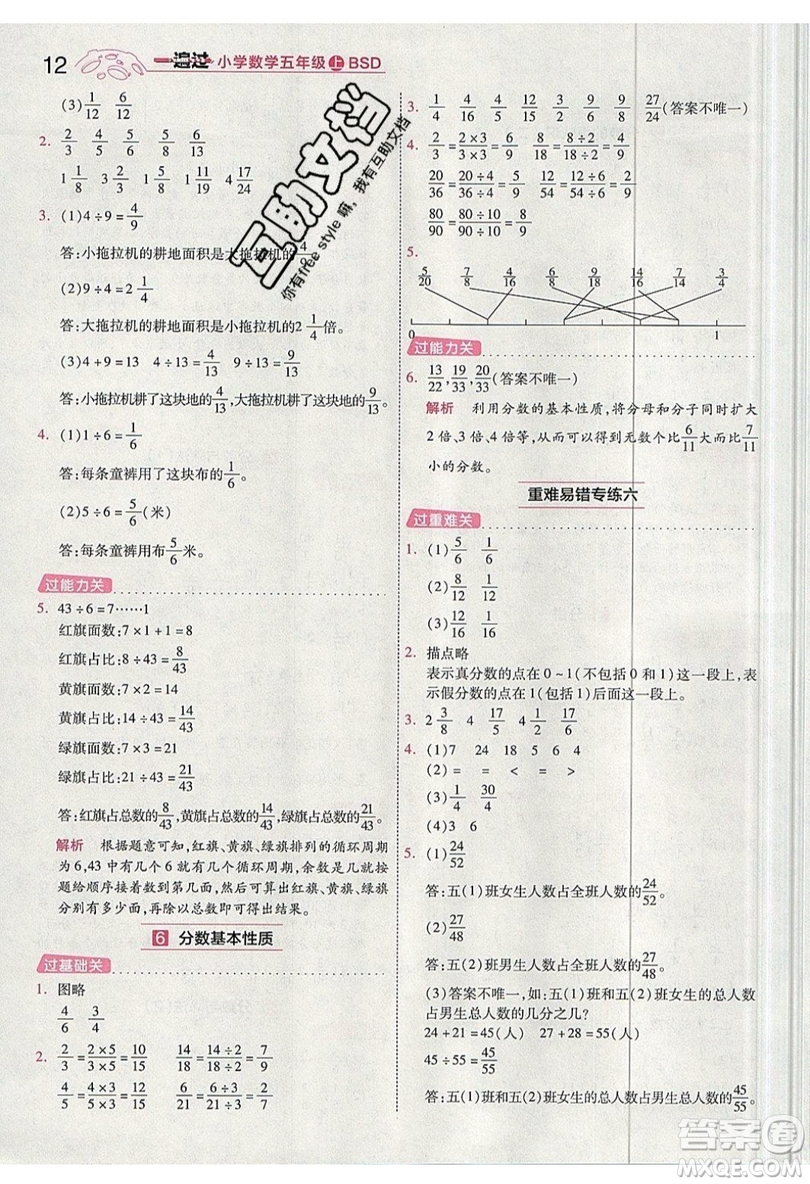 12 一遍过·小学数学五年级 上 BSD
(3) 1/12 6/12
2. 2/3 4/5 5/6 5/8 6/5
1 1/8 3 2/3 1 5/8 1 11/19 4 17/24
3. (1)4÷9=4/9
答:小拖拉机的耕地面积是大拖拉机的4/9。
(2)9÷4=2 1/4
答:大拖拉机的耕地面积是小拖拉机的2 1/4倍。
(3)4+9=13 4÷13=4/13 9÷13=9/13
答:小拖拉机耕了这块地的4/13,大拖拉机耕了这块地的9/13。
4. (1)1÷6=1/6
答:每条童裤用了这块布的1/6。
(2)5÷6=5/6(米)
答:每条童裤用布5/6米。
过能力关
5. 43÷6=7……1
红旗面数:7×1+1=8
红旗占比:8÷43=8/43
黄旗面数:7×2=14
黄旗占比:14÷43=14/43
绿旗面数:7×3=21
绿旗占比:21÷43=21/43
答:红旗占总数的8/43,黄旗占总数的14/43,绿旗占总数的21/43。
解析 根据题意可知,红旗、黄旗、绿旗排列的循环周期
为6,43中有几个6就有几个循环周期,余数是几,按
题给顺序接着往后排几面,然后看红旗、黄旗、绿旗
分别有多少面,再除以总面数即可得出结果。
6 分数基本性质
过基础关
1. 图略
4/6 3/4
2. 2/3=2×5/3×5=10/15 14/18=14÷2/18÷2=7/9
4/5=4×4/5×4=16/20 6/21=6÷3/21÷3=2/7
3. 1/4 4/16 9/16 3/8 2/9 6/9 9/8 27/24(答案不唯一)
4. 2/3=2×3/3×3=6/9 8/18=8÷2/18÷2=4/9
20/36=20÷4/36÷4=5/9 21/27=21÷3/27÷3=7/9
80/90=80÷10/90÷10=8/9
5.
5/20 7/8 4/16 6/8 9/18 14/16 7/14 3/4
0 1
过能力关
6. 13/22,19/33,20/33(答案不唯一)
解析 利用分数的基本性质,将分母和分子同时扩大
2倍、3倍、4倍等,从而可以得出无数个比6/11大比7/11
小的分数。
重难易错专练六
过重难关
1. (1)5/6 1/6
(2)1/8 4/8
(3)12/16 9/16
2. 描点略
表示真分数的点在0~1(不包括0和1)这一段上,表
示假分数的点在1(包括1)后面这一段上。
3. 2 3/8 4 17/5 4 1/2 17/6
4. (1)7 24 18 5 6 4
(2)= = < = < >
(3)1/4 30/4
(4)3 6
5. (1)24/52
答:五(1)班女生人数占全班人数的24/52。
(2)27/48
答:五(2)班男生人数占全班人数的27/48。
(3)答案不唯一,如:五(1)班和五(2)班女生的总人数
占男生总人数的几分之几?
24+21=45(人) 27+28=55(人)
45÷55=45/55
答:五(1)班和五(2)班女生的总人数占男生总人数的45/55。
互助文档
你有free style 嘛,我有互助文档
答案圈
MXQE.COM